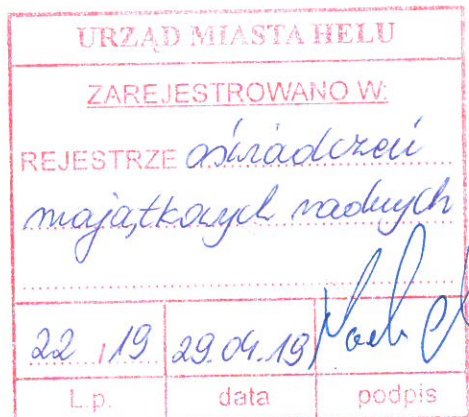 URZĄD MIASTA HELU
ZAREJESTROWANO W:
REJESTRZE oświadczeń
majątkowych radnych
22 / 19 29.04.19
L.p. data podpis